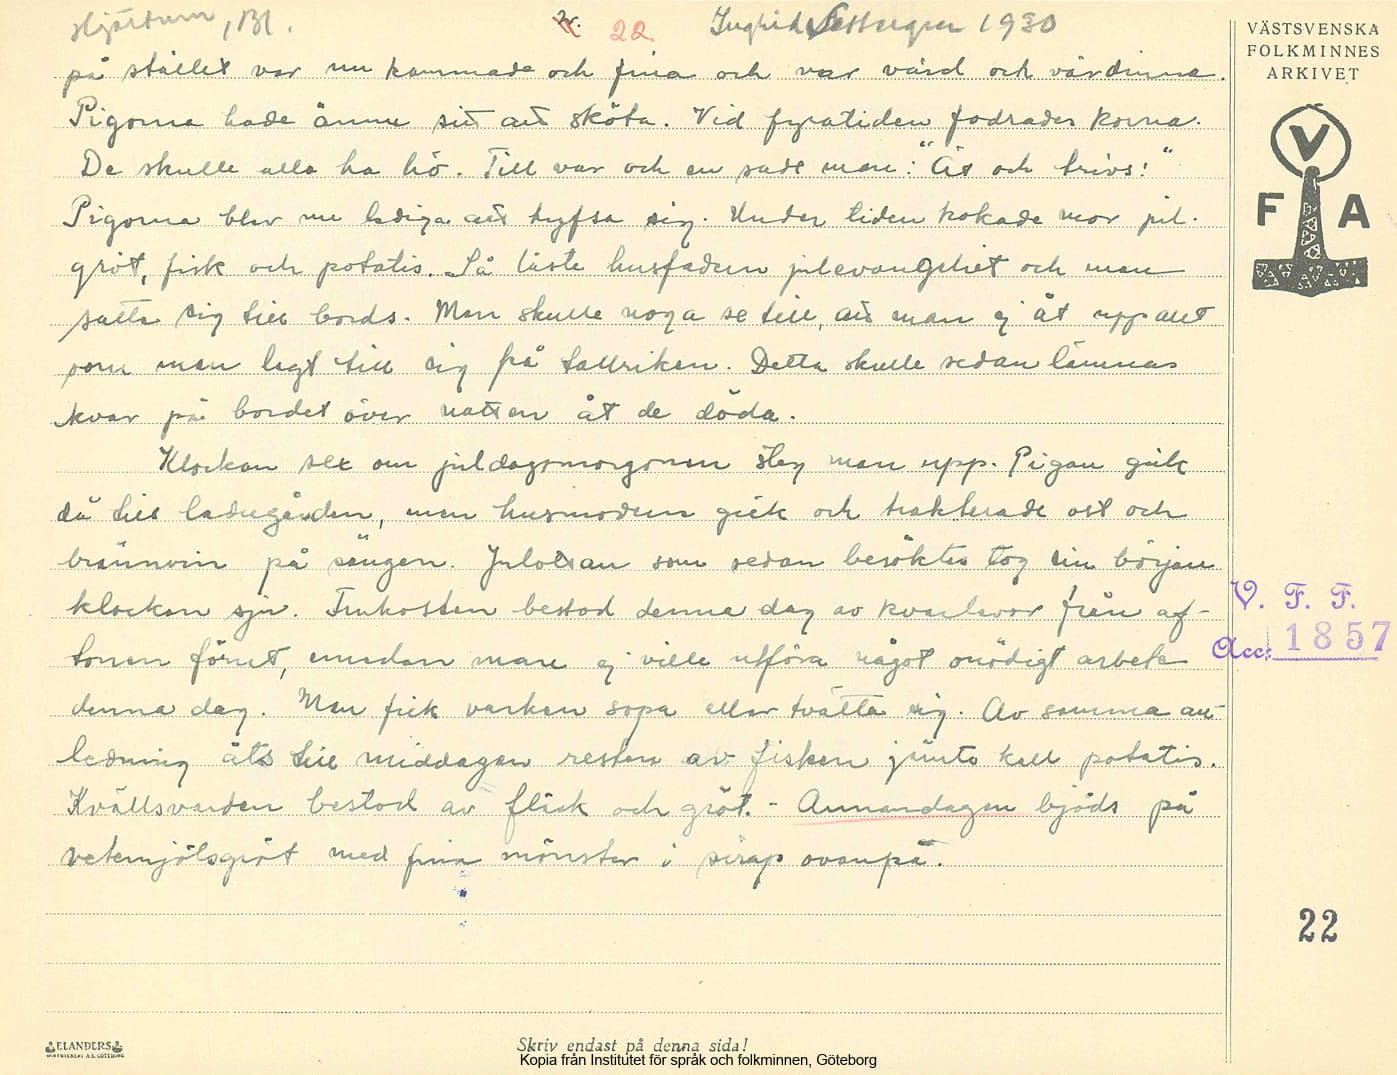 Hjärtum, Bl. 22. Ingrid 1930
på stället var nu kammade och fina och var värd och värdinna.
Pigorna hade ännu sitt att sköta. Vid fyratiden fodrades korna.
De skulle alla ha hö. Till var och en sade man: "Ät och trivs!"
Pigorna blev nu lediga att hyfsa sig. Under tiden kokade mor jul-
gröt, fisk och potatis. Så läste husfadern julevangeliet och man
satte sig till bords. Man skulle noga se till, att man ej åt upp allt
som man lagt till sig på tallriken. Detta skulle sedan lämnas
kvar på bordet över natten åt de döda.
Klockan sex om juldagsmorgonen steg man upp. Pigan gick
då till ladugården, men husmodern gick och trakterade ost och
brännvin på sängen. Julottan som sedan besöktes tog sin början
klockan sju. Frukosten bestod denna dag av kvarlevor från af-
tonen förut, emedan man ej ville utföra något onödigt arbete
denna dag. Man fick varken sopa eller tvätta sig. Av samma an-
ledning åts till middagen resten av fisken jämte kall potatis.
Kvällsvarden bestod av fläsk och gröt. - Annandagen bjöds på
vetemjölsgröt med fina mönster i sirap ovanpå.
VÄSTSVENSKA
FOLKMINNES
ARKIVET
V
F A
V. F. F.
Acc: 1857
22
ELANDERS
Skriv endast på denna sida!
Kopia från Institutet för språk och folkminnen, Göteborg